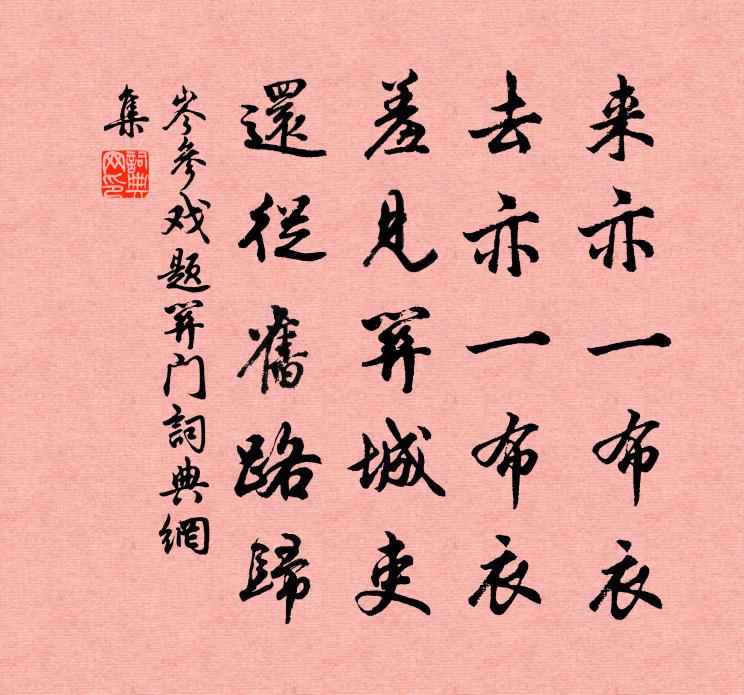 来亦一布衣
去亦一布衣
羞見關城吏
還從舊路歸
岑參戏題關门詞典網
集
詞典网印